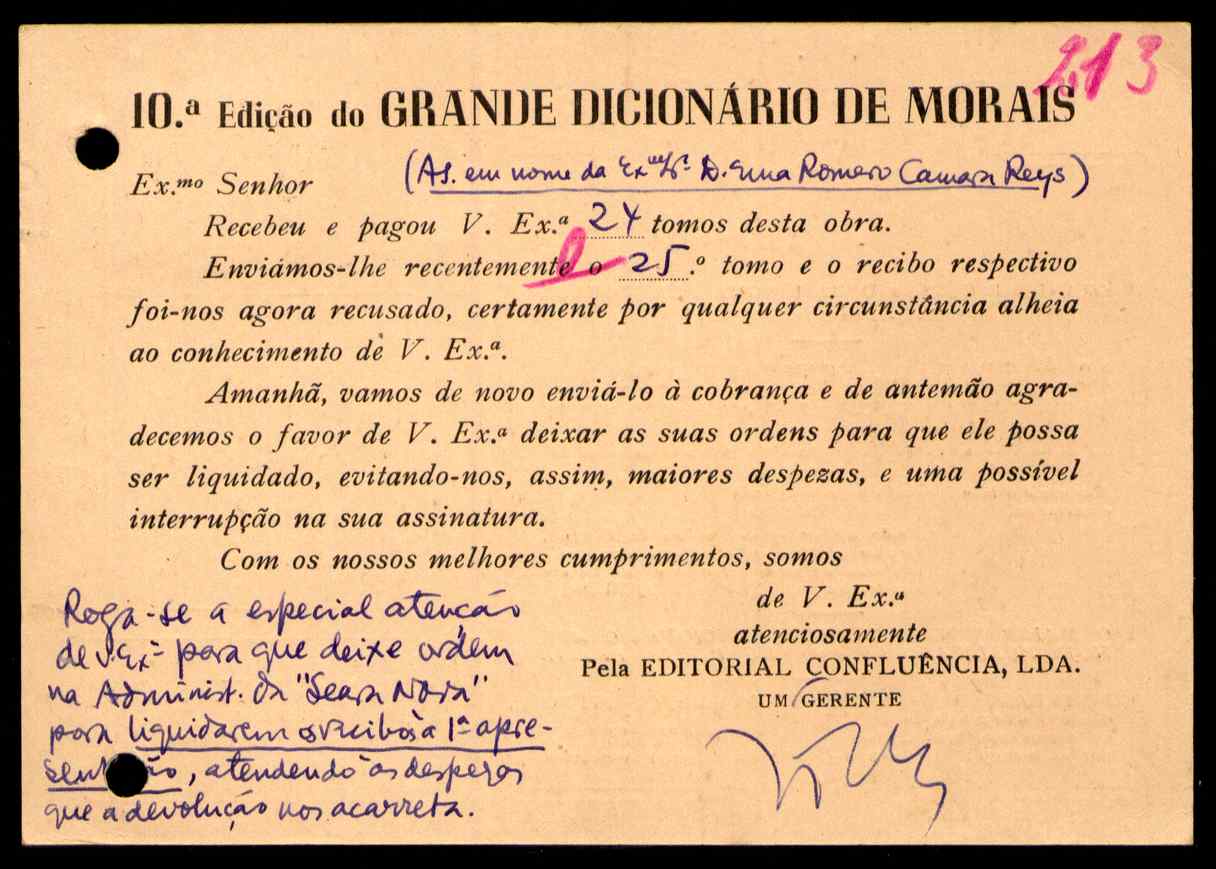 213
10.ª Edição do GRANDE DICIONÁRIO DE MORAIS
(As. em nome da Exmª Srª D. Ema Romero Camara Reys)
Ex.mo Senhor
Recebeu e pagou V. Ex.ª 24 tomos desta obra.
Enviámos-lhe recentemente o 25.º tomo e o recibo respectivo
foi-nos agora recusado, certamente por qualquer circunstância alheia
ao conhecimento de V. Ex.ª.
Amanhã, vamos de novo enviá-lo à cobrança e de antemão agra-
decemos o favor de V. Ex.ª deixar as suas ordens para que ele possa
ser liquidado, evitando-nos, assim, maiores despezas, e uma possível
interrupção na sua assinatura.
Com os nossos melhores cumprimentos, somos
de V. Ex.ª
atenciosamente
Pela EDITORIAL CONFLUÊNCIA, LDA.
UM GERENTE
Roga-se a especial atenção
de V. Exª para que deixe ordem
na Administ. da "Seara Nova"
para liquidarem os recibos à 1ª apre-
sentação, atendendo às despezas
que a devolução nos acarreta.